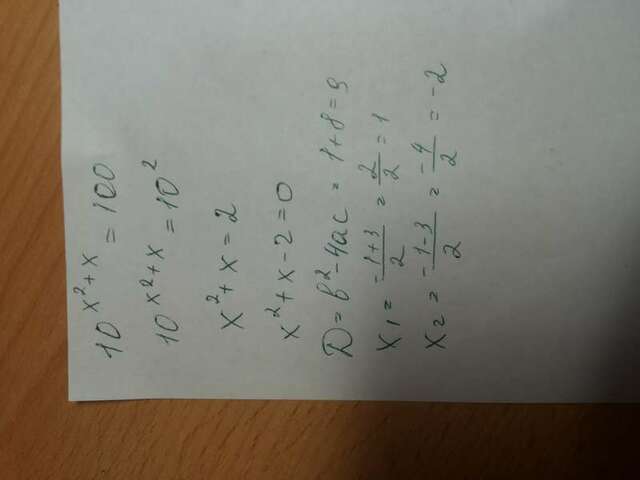 10^{x^2+x} = 100
10^{x^2+x} = 10^2
x^2 + x = 2
x^2 + x - 2 = 0
D = b^2 - 4ac = 1 + 8 = 9
x_1 = \frac{-1+3}{2} = \frac{2}{2} = 1
x_2 = \frac{-1-3}{2} = \frac{-4}{2} = -2